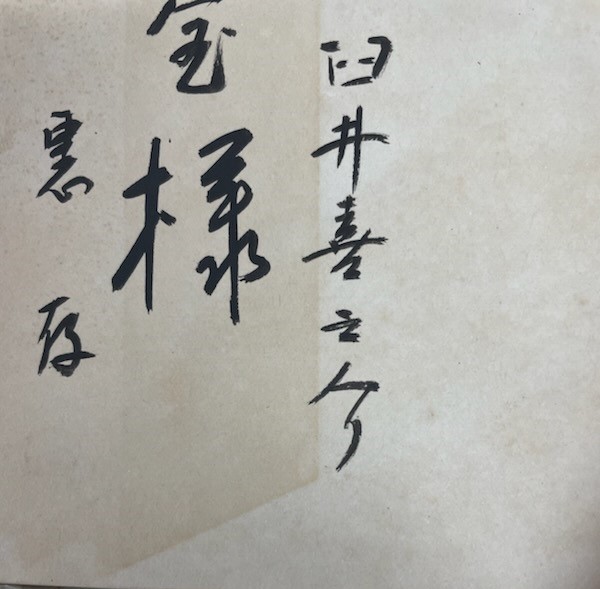 臼井喜之介
様
惠存